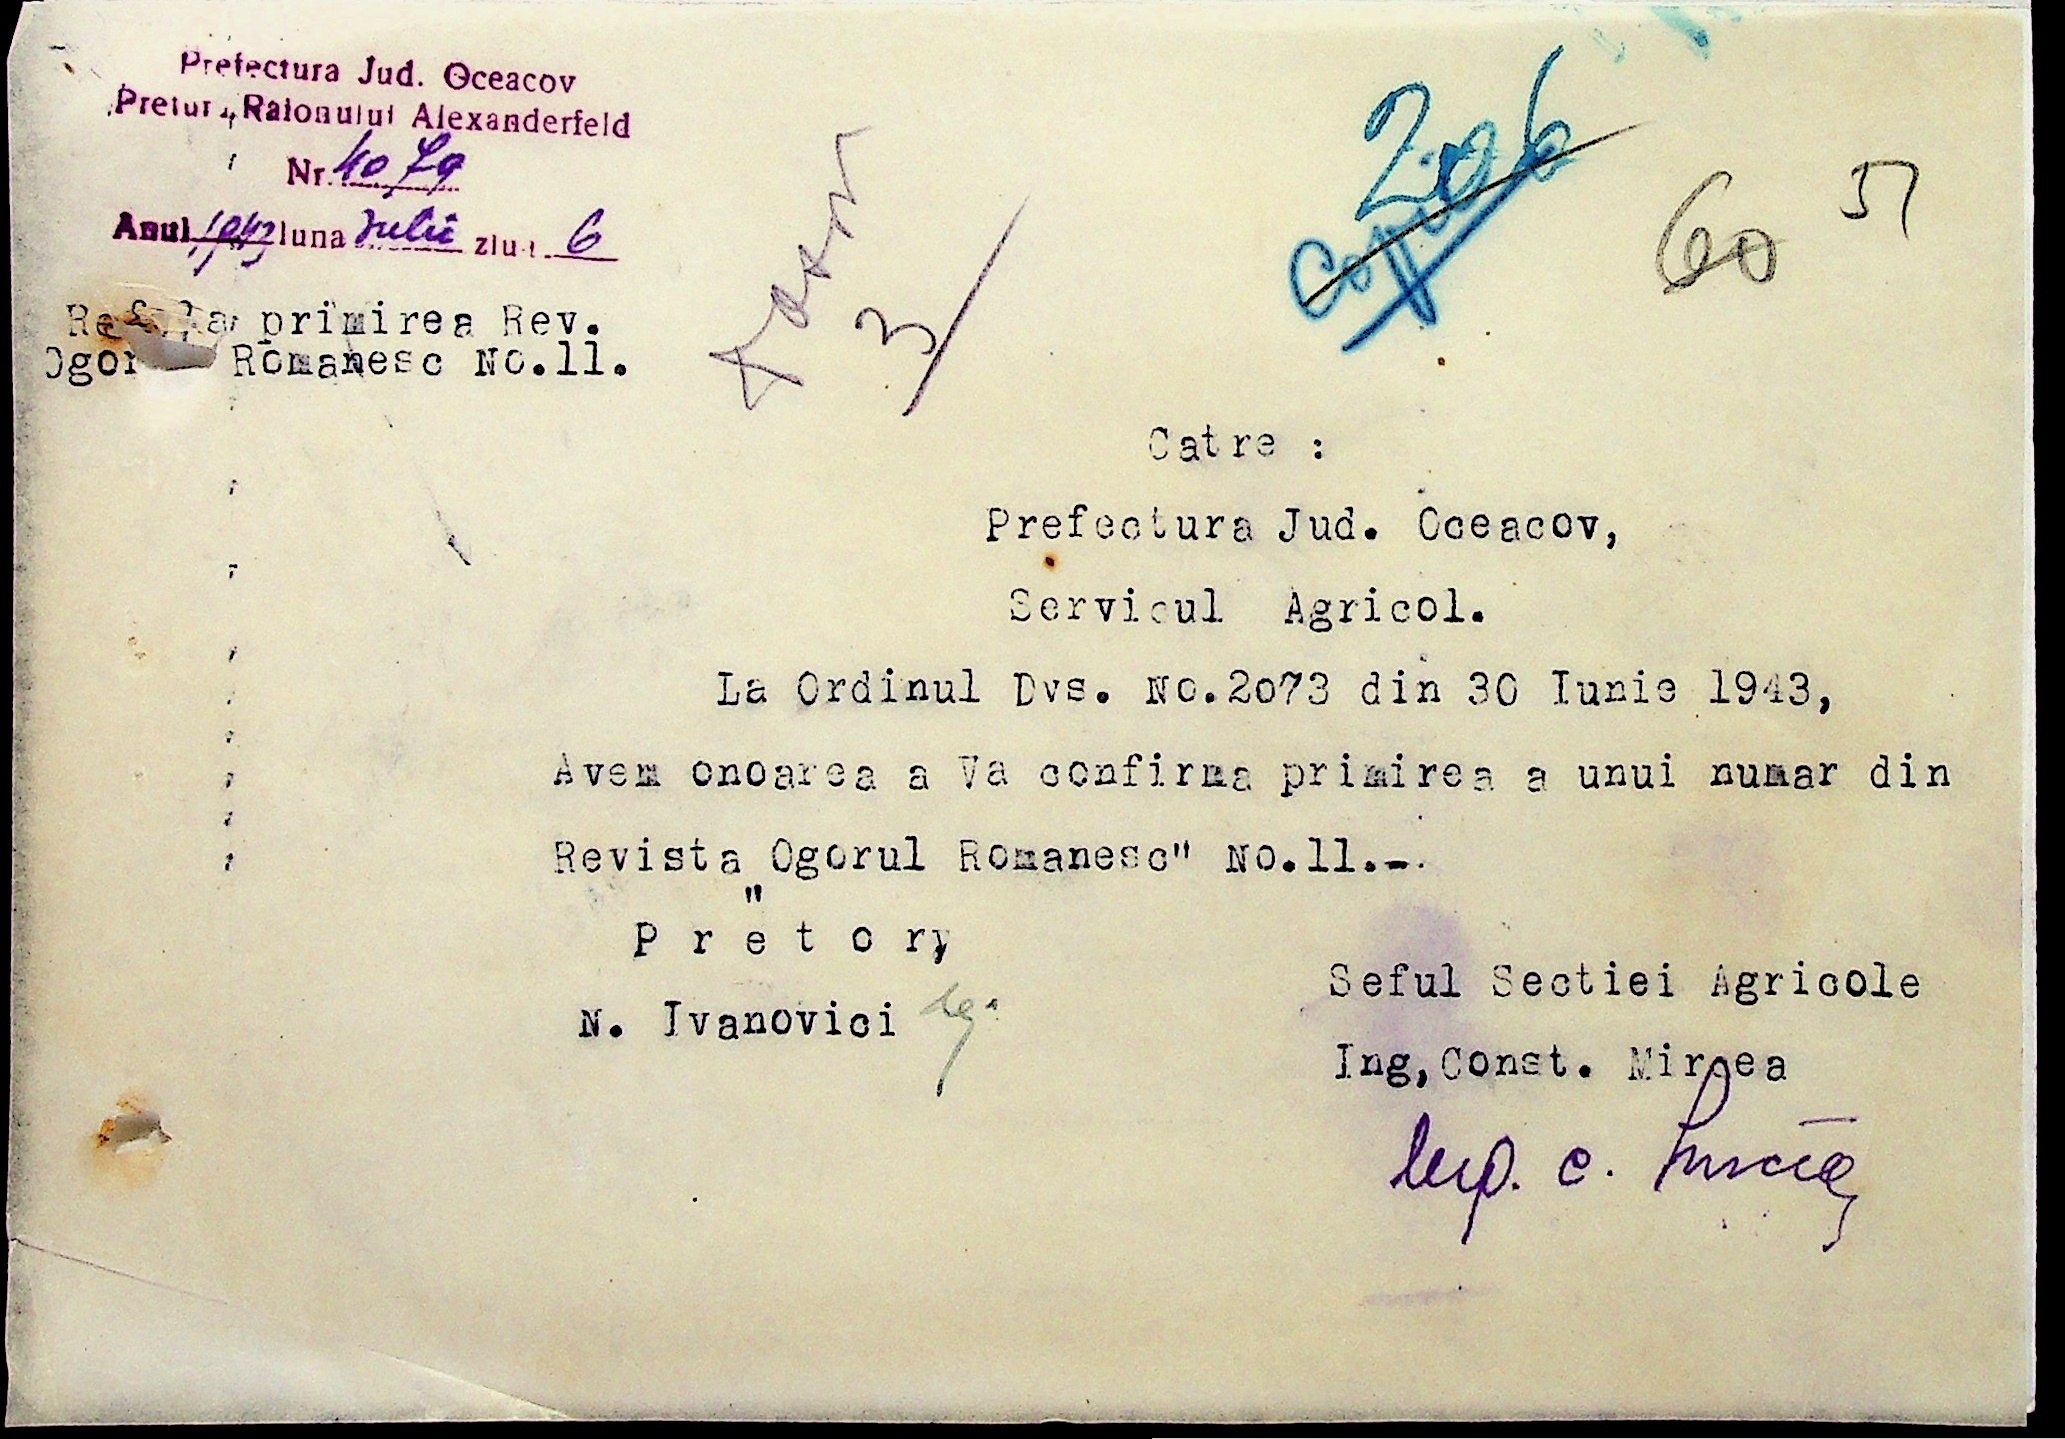 Prefectura Jud. Oceacov
Pretura Raionului Alexanderfeld
Nr. 4079
Anul 1943 luna Iulie ziua 6
Ref. la primirea Rev.
Ogor Romanesc No.11.
206
60 51
3
Catre :
Prefectura Jud. Oceacov,
Servicul Agricol.
La Ordinul Dvs. No.2073 din 30 Iunie 1943,
Avem onoarea a Va confirma primirea a unui numar din
Revista "Ogorul Romanesc" No.11.-.
Pretor,
N. Ivanovici
Seful Sectiei Agricole
Ing,Const. Mircea
Ing. C. Mircea